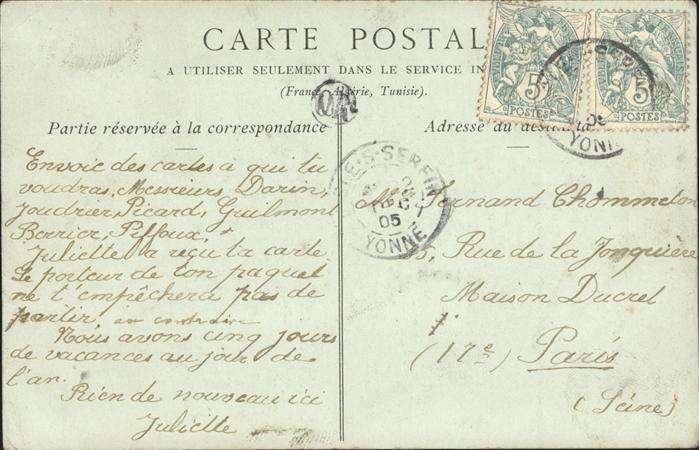 CARTE POSTAL
A UTILISER SEULEMENT DANS LE SERVICE IN
(France, Algérie, Tunisie).
Partie réservée à la correspondance
Envoie des cartes à qui tu
voudras, Messieurs Darin,
Joudrier, Picard, Guilmont
Berrier, Peffoux,
Juliette a reçu ta carte
Le porteur de ton paquet
ne t'empêchera pas de
partir, au contraire
Nous avons cinq jours
de vacances au jour de
l'an.
Rien de nouveau ici
Juliette
OR
Adresse du destina
M. Fernand Chommeton
5, Rue de la Jonquière
Maison Ducrel
(17e) Paris
(Seine)
5
POSTES
5
POSTES
YONNE
S-SEREIN
DEC
05
YONNE